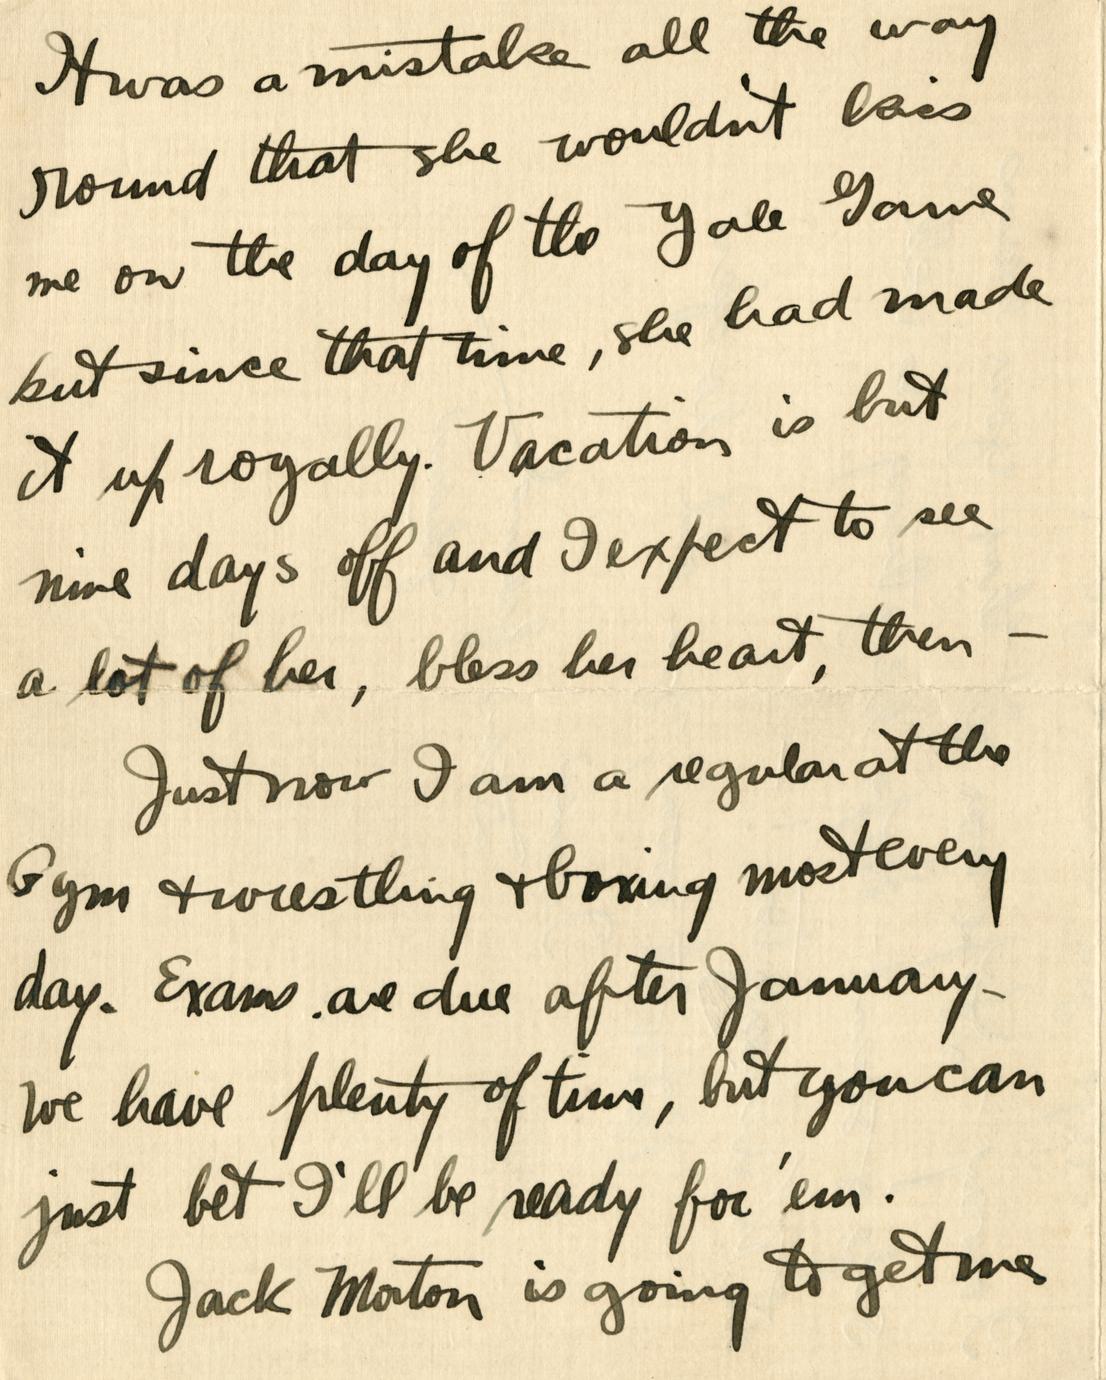 It was a mistake all the way
round that she wouldn't kiss
me on the day of the Yale Game
but since that time, she had made
it up royally. Vacation is but
nine days off and I expect to see
a lot of her, bless her heart, then —
Just now I am a regular at the
Gym + wrestling + boxing most every
day. Exams are due after January –
we have plenty of time, but you can
just bet I'll be ready for 'em.
Jack Morton is going to get me